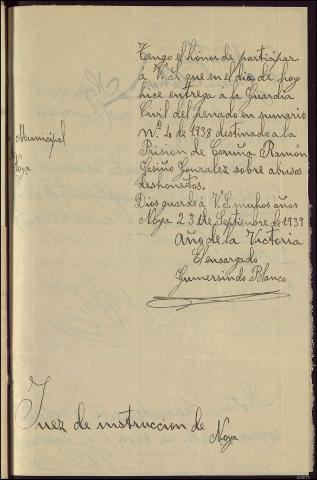 Tengo el honor de participar
á V.S. que en el dia de hoy
hice entrega a la Guardia
Civil del penado en sumario
Nº 4 de 1938 destinado a la
Prision de Coruña Ramón
Gosiño Gonzalez sobre abusos
deshonestos.
Dios guarde á V.S. muchos años
Noya 23 de Septiembre de 1939
Año de la Victoria
El encargado
Gumersindo Blanco
Municipal
Noya
Juez de instruccion de
Noya